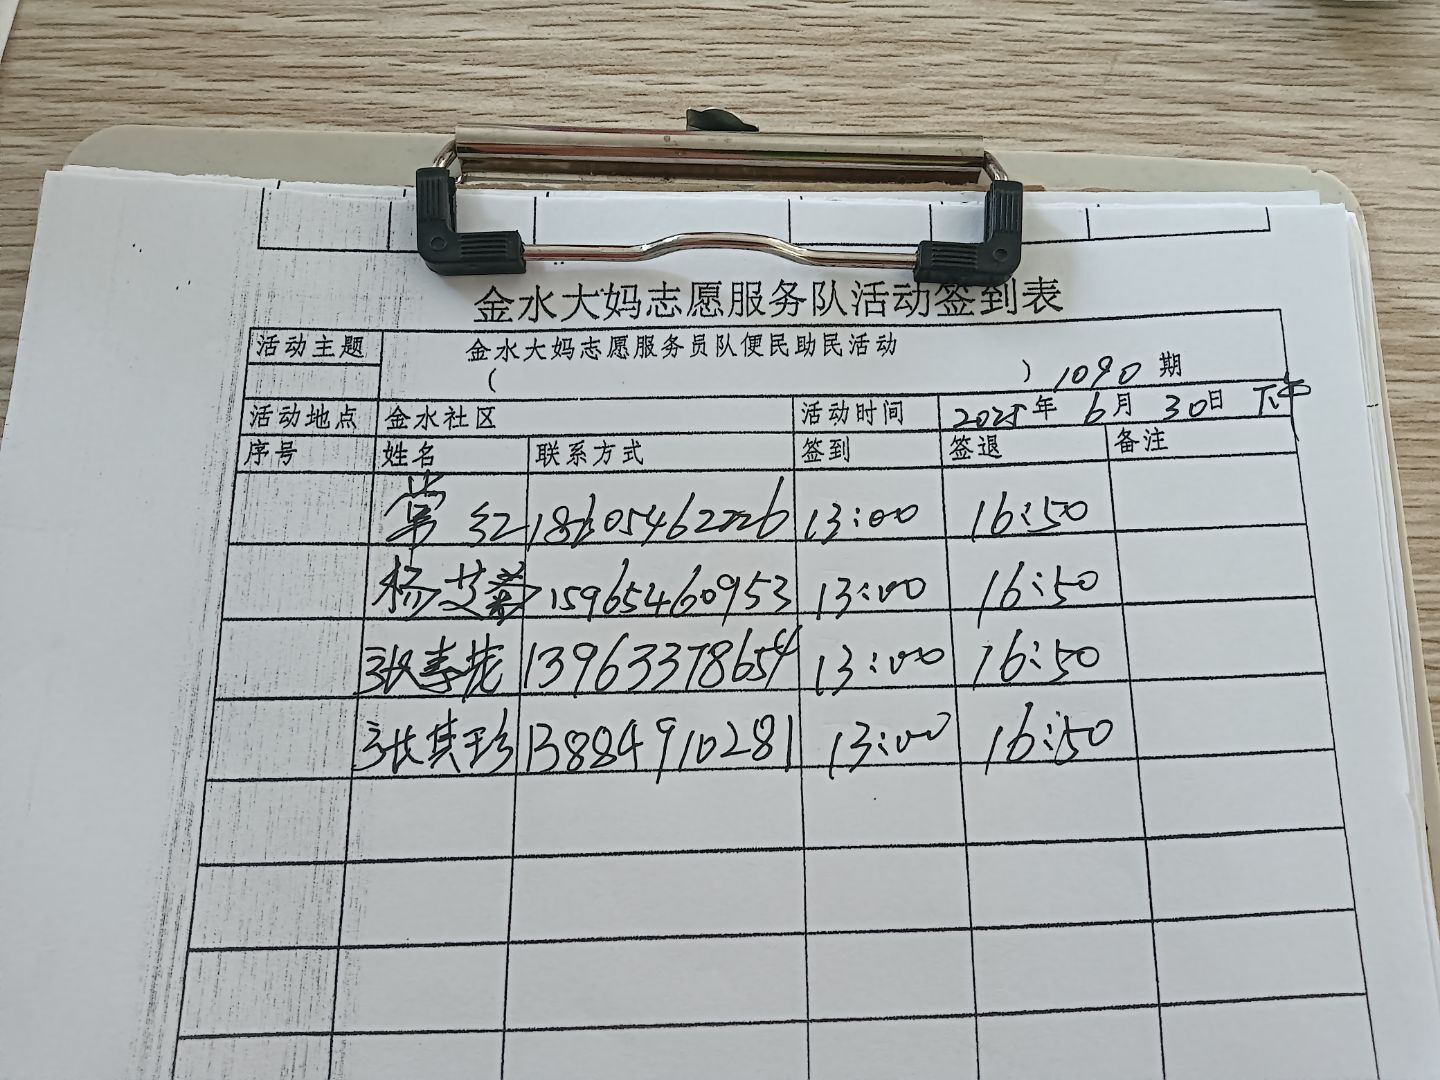 金水大妈志愿服务队活动签到表
活动主题 金水大妈志愿服务员队便民助民活动
( ) 1090 期
活动地点 金水社区 活动时间 2025年 6月 30日 下午
序号 姓名 联系方式 签到 签退 备注
常红 18605462226 13:00 16:50
杨艾 15965460953 13:00 16:50
张春 13963378654 13:00 16:50
张其珍 13884910281 13:00 16:50